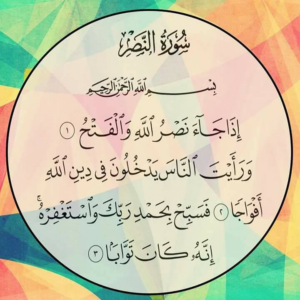 سُورَةُ النَّصْرِ
بِسْمِ اللَّهِ الرَّحْمَٰنِ الرَّحِيمِ
إِذَا جَآءَ نَصْرُ ٱللَّهِ وَٱلْفَتْحُ ١
وَرَأَيْتَ ٱلنَّاسَ يَدْخُلُونَ فِى دِينِ ٱللَّهِ
أَفْوَاجًا ٢ فَسَبِّحْ بِحَمْدِ رَبِّكَ وَٱسْتَغْفِرْهُ ۚ
إِنَّهُۥ كَانَ تَوَّابًۢا ٣